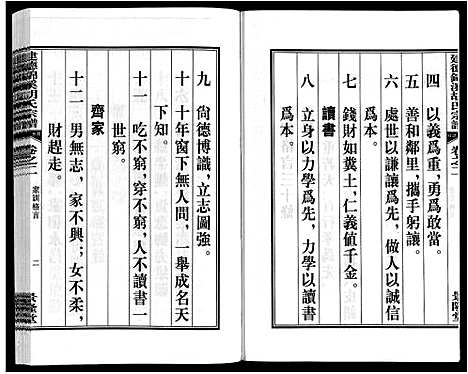 建德錦溪胡氏宗譜
卷之二
四 以義爲重，勇爲敢當。
五 善和鄰里，攜手躬讓。
六 處世以謙讓爲先，做人以誠信
爲本。
七 錢財如糞土，仁義值千金。
讀書
八 立身以力學爲先，力學以讀書
爲本。
九 尚德博識，立志圖強。
十 十年窗下無人問，一舉成名天
下知。
十一 吃不窮，穿不窮，人不讀書一
世窮。
齊家
十二 男無志，家不興；女不柔，
財趕走。
建德錦溪胡氏宗譜
卷之二
家訓格言
二